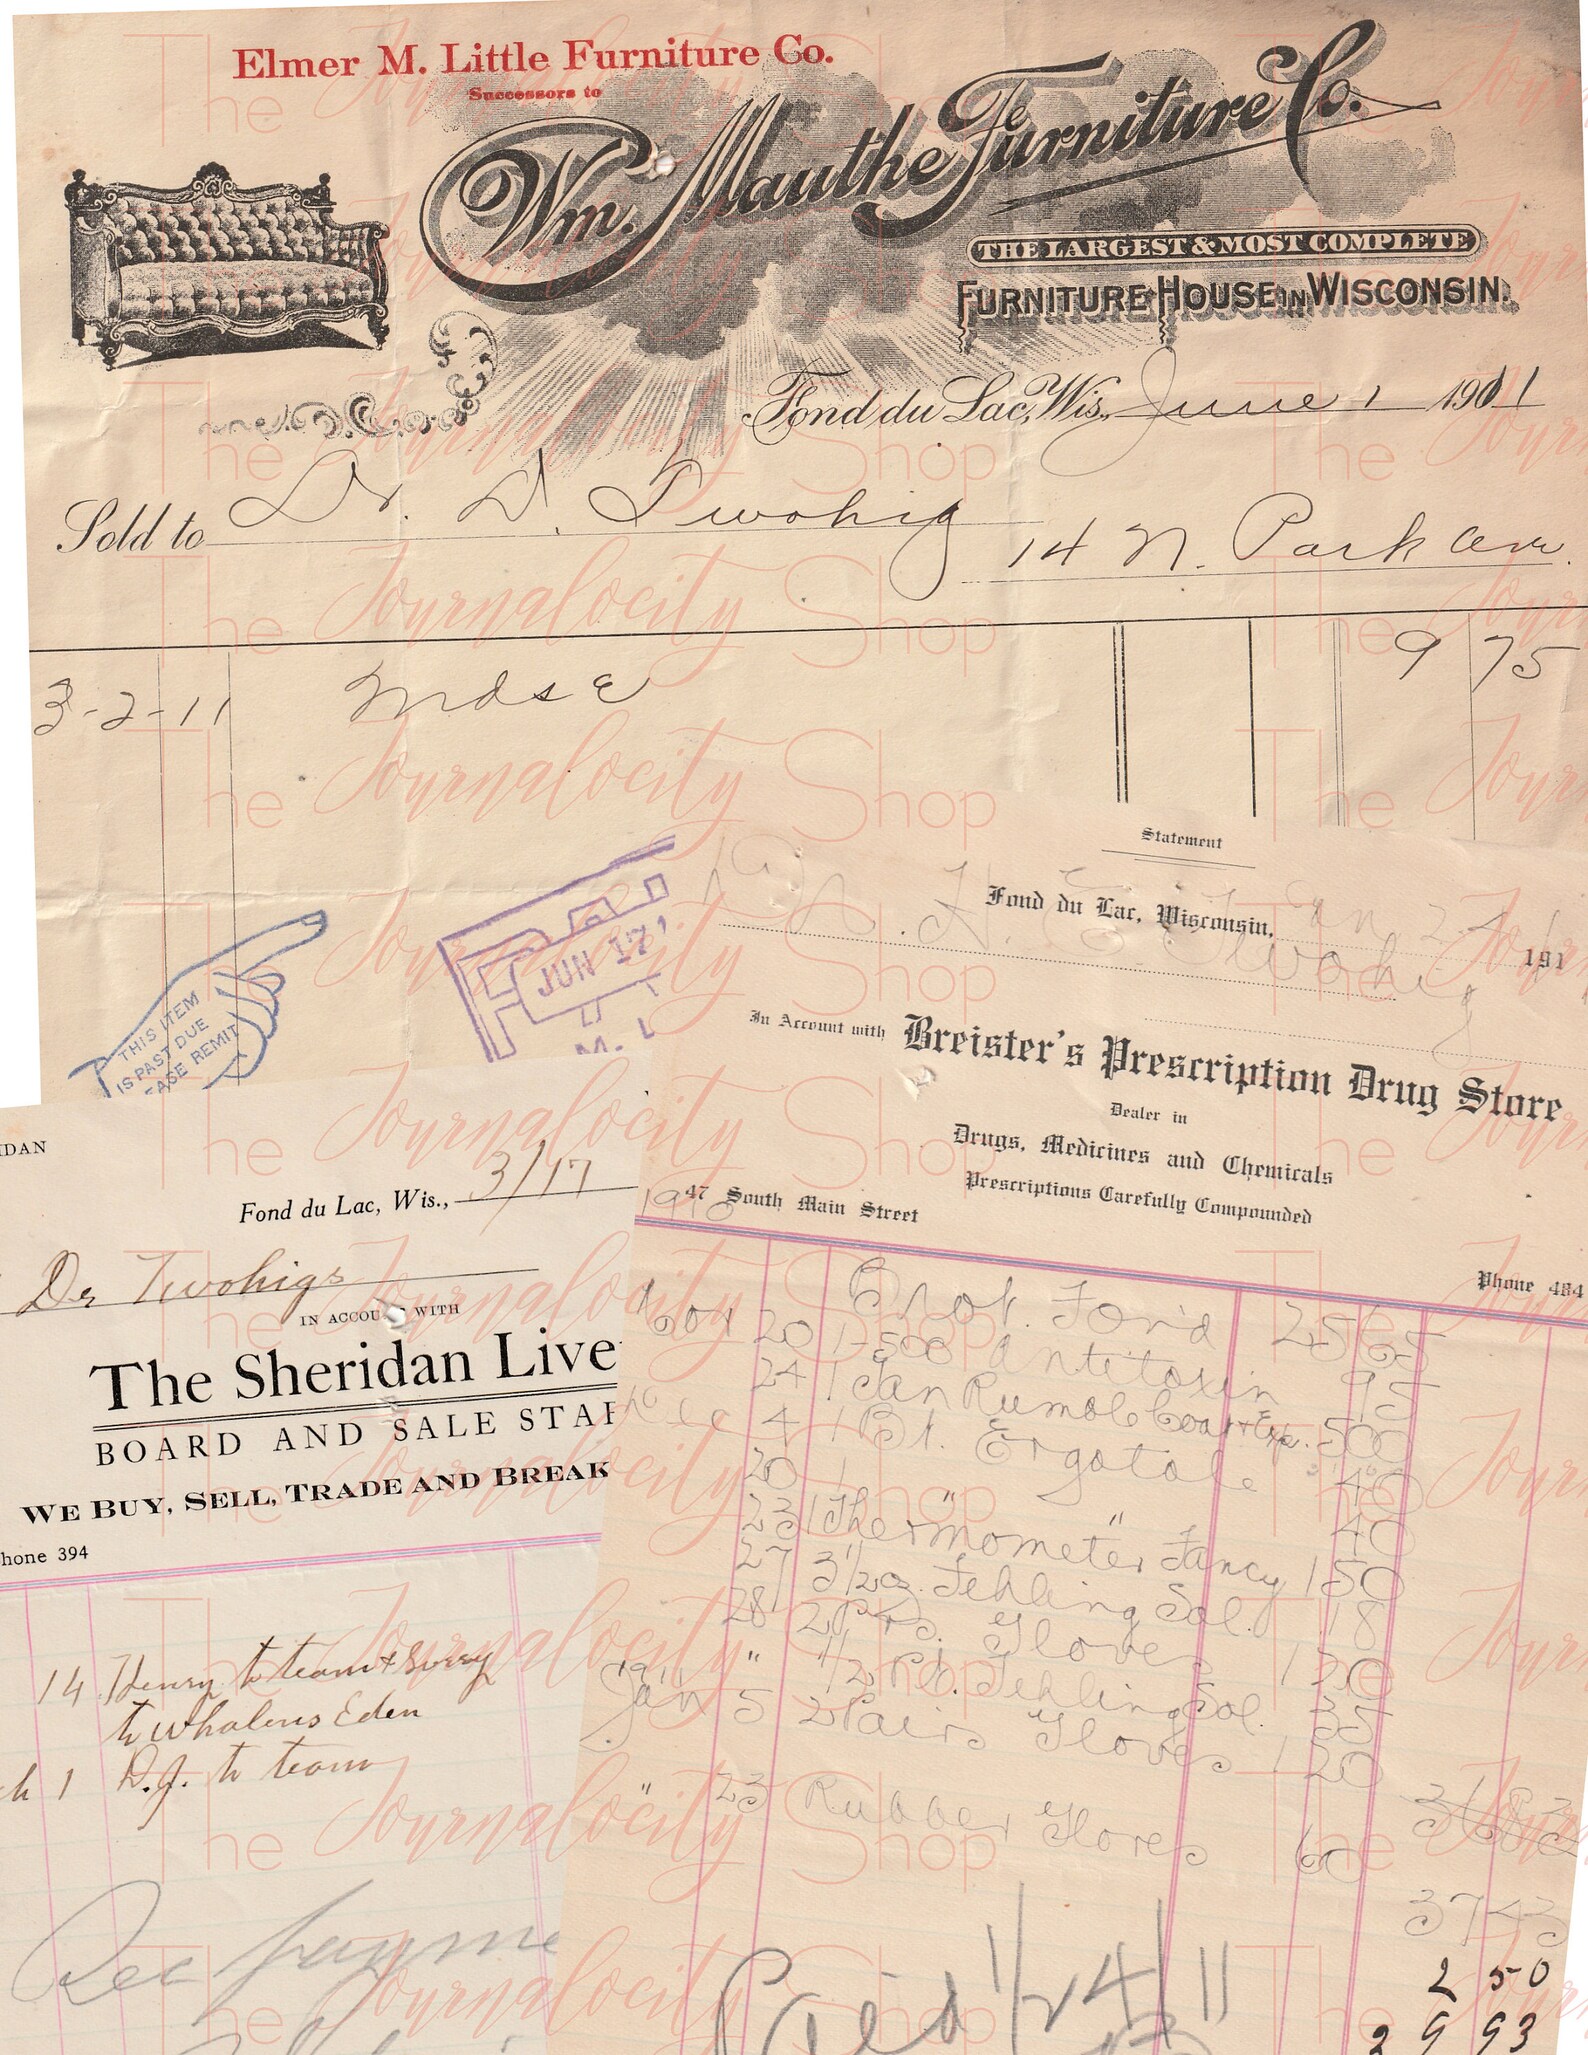 Elmer M. Little Furniture Co.
Successors to
Wm. Mauthe Furniture Co.
THE LARGEST & MOST COMPLETE
FURNITURE HOUSE IN WISCONSIN.
Fond du Lac, Wis., June 1 1911
Sold to Dr. D. Twohig
14 N. Park Ave.
3-2-11 Mdse 9 75
THIS ITEM
IS PAST DUE
EASE REMIT
JUN 17'
M. L
Statement
Fond du Lac, Wisconsin, Jan 24 191
Dr. H. E. Twohig
In Account with Breister's Prescription Drug Store
Dealer in
Drugs, Medicines and Chemicals
Prescriptions Carefully Compounded
47 South Main Street
Phone 484
1910
Brot. For'd 25 65
20 1-500 Antitoxin 95
24 1 Gan Rumol 500
Dec 4 1 Bt. Ergotole 40
20 1 " " 40
23 1 Thermometer Fancy 1 50
27 3 1/2 oz. Fehling Sol. 18
28 2 Prs. Gloves 1 20
" 1/2 Pt. Fehling Sol. 35
1911
Jan 5 2 Pairs Gloves 1 20
" 23 Rubber Gloves 60
3683
3743
2 50
3 9 93
Paid 1/24/11
IDAN
Fond du Lac, Wis., 3/17
Dr Twohigs
IN ACCOUNT WITH
The Sheridan Live
BOARD AND SALE STA
WE BUY, SELL, TRADE AND BREAK
hone 394
14 Henry to team & surry
to Whalens Eden
ch 1 D.J. to team
Rec payme
The Journalocity Shop